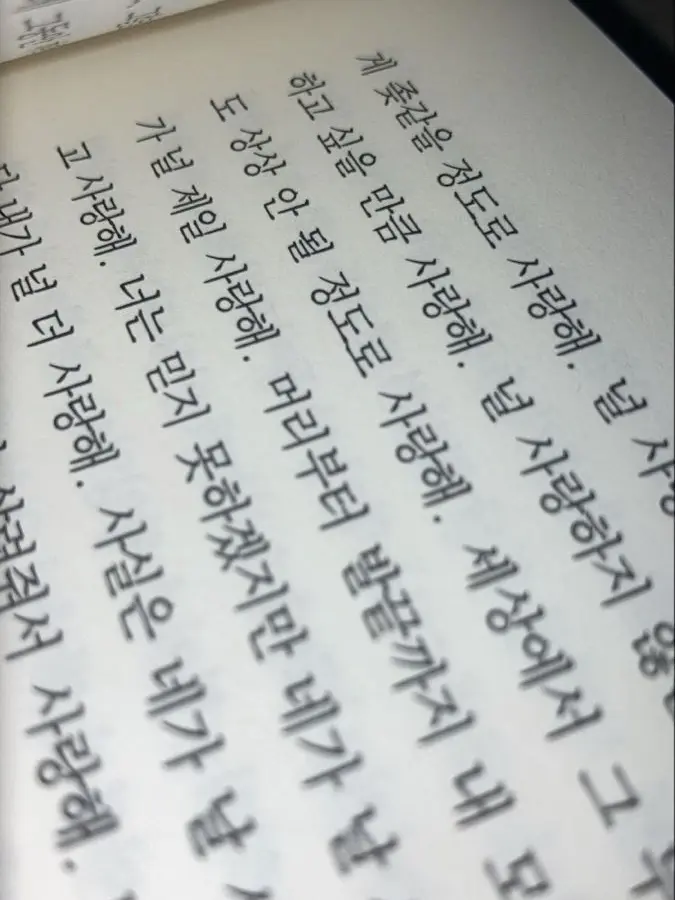 게 좆같을 정도로 사랑해. 널
하고 싶을 만큼 사랑해. 널 사랑하지
도 상상 안 될 정도로 사랑해. 세상에서 그
가 널 제일 사랑해. 머리부터 발끝까지 내
고 사랑해. 너는 믿지 못하겠지만 네가 날
다 내가 널 더 사랑해. 사실은 네가 날
살려줘서 사랑해.